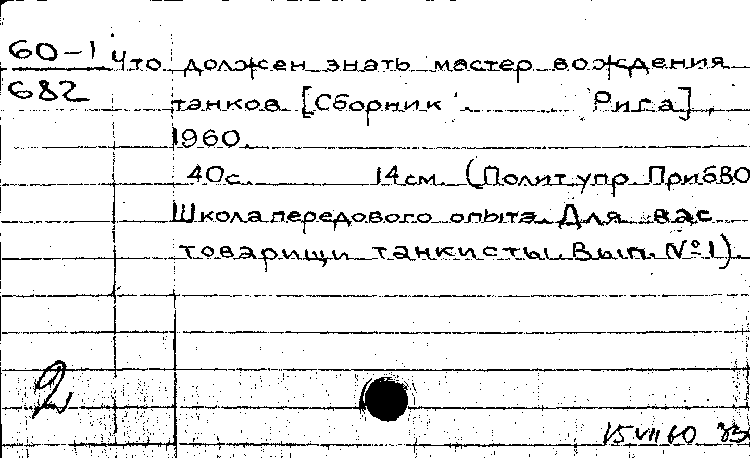 60-1 Что должен знать мастер вождения
682
танков [Сборник. Рига],
1960.
40с. 14см. (Полит.упр. ПрибВО
Школа передового опыта. Для вас
товарищи танкисты. Вып. №1).
2
15 VII 60